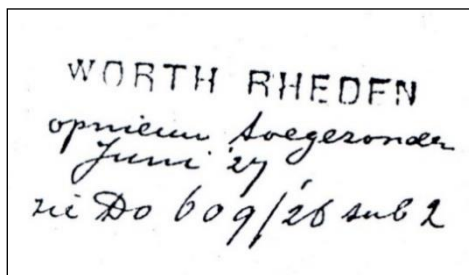 WORTH RHEDEN
opnieuw toegezonden
Juni '27
zie Do 609/26 sub 2